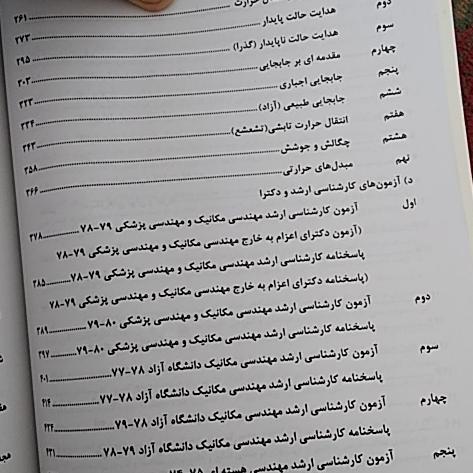 حرارت ۲۶۱
دوم هدایت حالت پایدار ۲۷۳
سوم هدایت حالت ناپایدار (گذرا) ۲۹۵
چهارم مقدمه ای بر جابجایی ۳۰۳
پنجم جابجایی اجباری ۳۲۳
ششم جابجایی طبیعی (آزاد) ۳۳۴
هفتم انتقال حرارت تابشی(تشعشع) ۳۴۳
هشتم چگالش و جوشش ۳۵۸
نهم مبدل‌های حرارتی ۳۶۶
د) آزمون‌های کارشناسی ارشد و دکترا
اول آزمون کارشناسی ارشد مهندسی مکانیک و مهندسی پزشکی ۷۹-۷۸ ۳۷۸
(آزمون دکترای اعزام به خارج مهندسی مکانیک و مهندسی پزشکی ۷۹-۷۸
پاسخنامه کارشناسی ارشد مهندسی مکانیک و مهندسی پزشکی ۷۹-۷۸ ۳۸۵
(پاسخنامه دکترای اعزام به خارج مهندسی مکانیک و مهندسی پزشکی ۷۹-۷۸
دوم آزمون کارشناسی ارشد مهندسی مکانیک و مهندسی پزشکی ۸۰-۷۹ ۳۸۹
پاسخنامه کارشناسی ارشد مهندسی مکانیک و مهندسی پزشکی ۸۰-۷۹ ۳۹۷
سوم آزمون کارشناسی ارشد مهندسی مکانیک دانشگاه آزاد ۷۸-۷۷ ۴۰۱
پاسخنامه کارشناسی ارشد مهندسی مکانیک دانشگاه آزاد ۷۸-۷۷ ۴۱۴
چهارم آزمون کارشناسی ارشد مهندسی مکانیک دانشگاه آزاد ۷۹-۷۸ ۴۲۴
پاسخنامه کارشناسی ارشد مهندسی مکانیک دانشگاه آزاد ۷۹-۷۸ ۴۳۱
پنجم آزمون کارشناسی ارشد مهندسی هسته ای